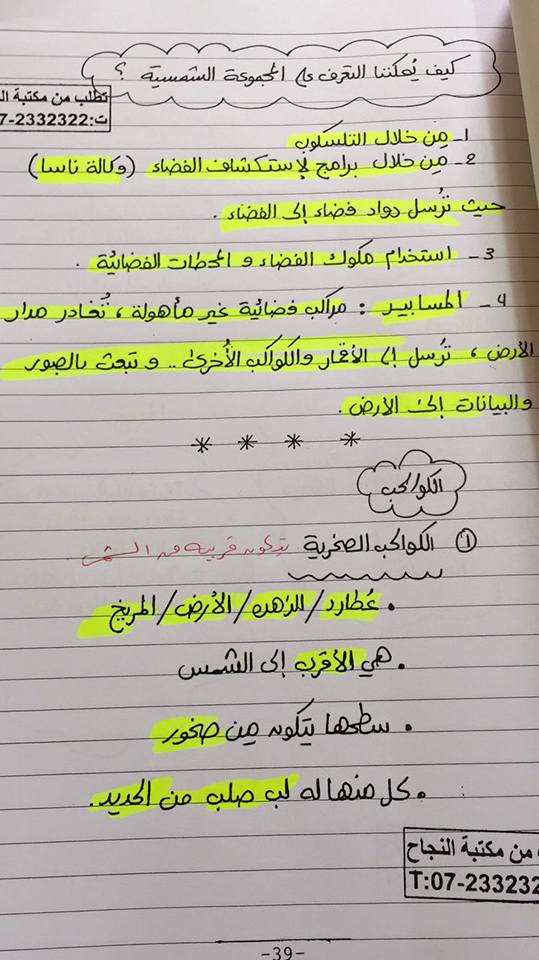 كيف يُمكننا التعرف على المجموعة الشمسية ؟
تطلب من مكتبة
ت:07-2332322
1- مِن خلال التلسكوب
2- مِن خلال برامج لإستكشاف الفضاء (وكالة ناسا)
حيث تُرسل رواد فضاء إلى الفضاء .
3- استخدام مكوك الفضاء و المحطات الفضائية .
4- المسابير : مراكب فضائية غير مأهولة ، تُغادر مدار
الأرض ، ترسل إلى الأقمار والكواكب الأُخرى .. و تبعث بالصور
والبيانات إلى الأرض .
* * * *
الكواكب
① الكواكب الصخرية يتكون قريبه من الشمس
• عُطارد / الزهرة / الأرض / المريخ
• هي الأقرب إلى الشمس
• سطحها يتكون مِن صخور
• كل منها له لب صلب من الحديد .
من مكتبة النجاح
T:07-233232
-39-